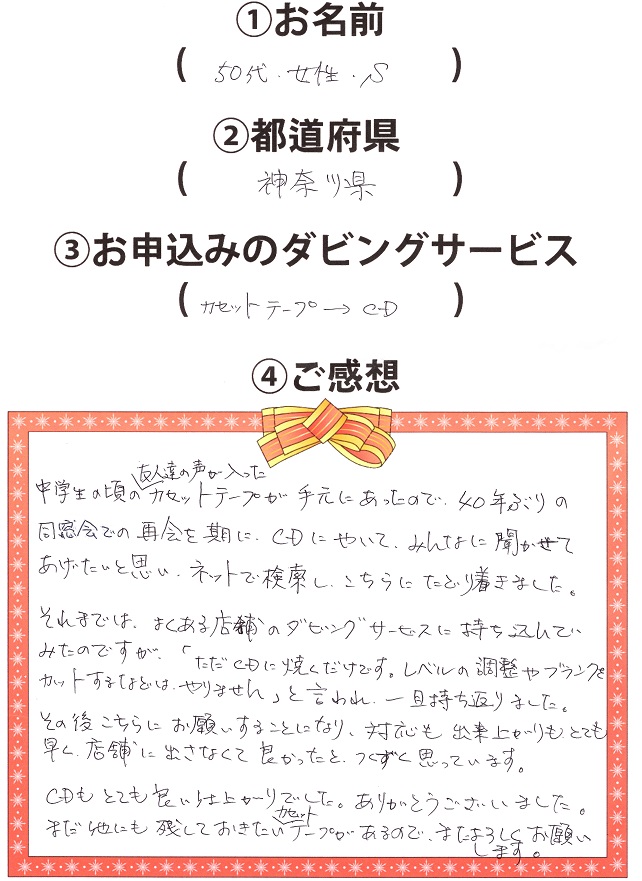 ①お名前
(50代・女性・S)
②都道府県
(神奈川県)
③お申込みのダビングサービス
(カセットテープ→CD)
④ご感想
友人達の声が入った
中学生の頃のカセットテープが手元にあったので、40年ぶりの
同窓会での再会を期に、CDにやいて、みんなに聞かせて
あげたいと思い、ネットで検索し、こちらにたどり着きました。
それまでは、よくある店舗のダビングサービスに持ち込んでい
みたのですが、「ただCDに焼くだけです。レベルの調整やブランクを
カットするなどは、やりません」と言われ、一旦持ち返りました。
その後こちらにお願いすることになり、対応も出来上がりもとても
早く、店舗に出さなくて良かったと、つくずく思っています。
CDもとても良い仕上がりでした。ありがとうございました。
カセット
まだ他にも残しておきたいテープがあるので、またよろしくお願い
します。